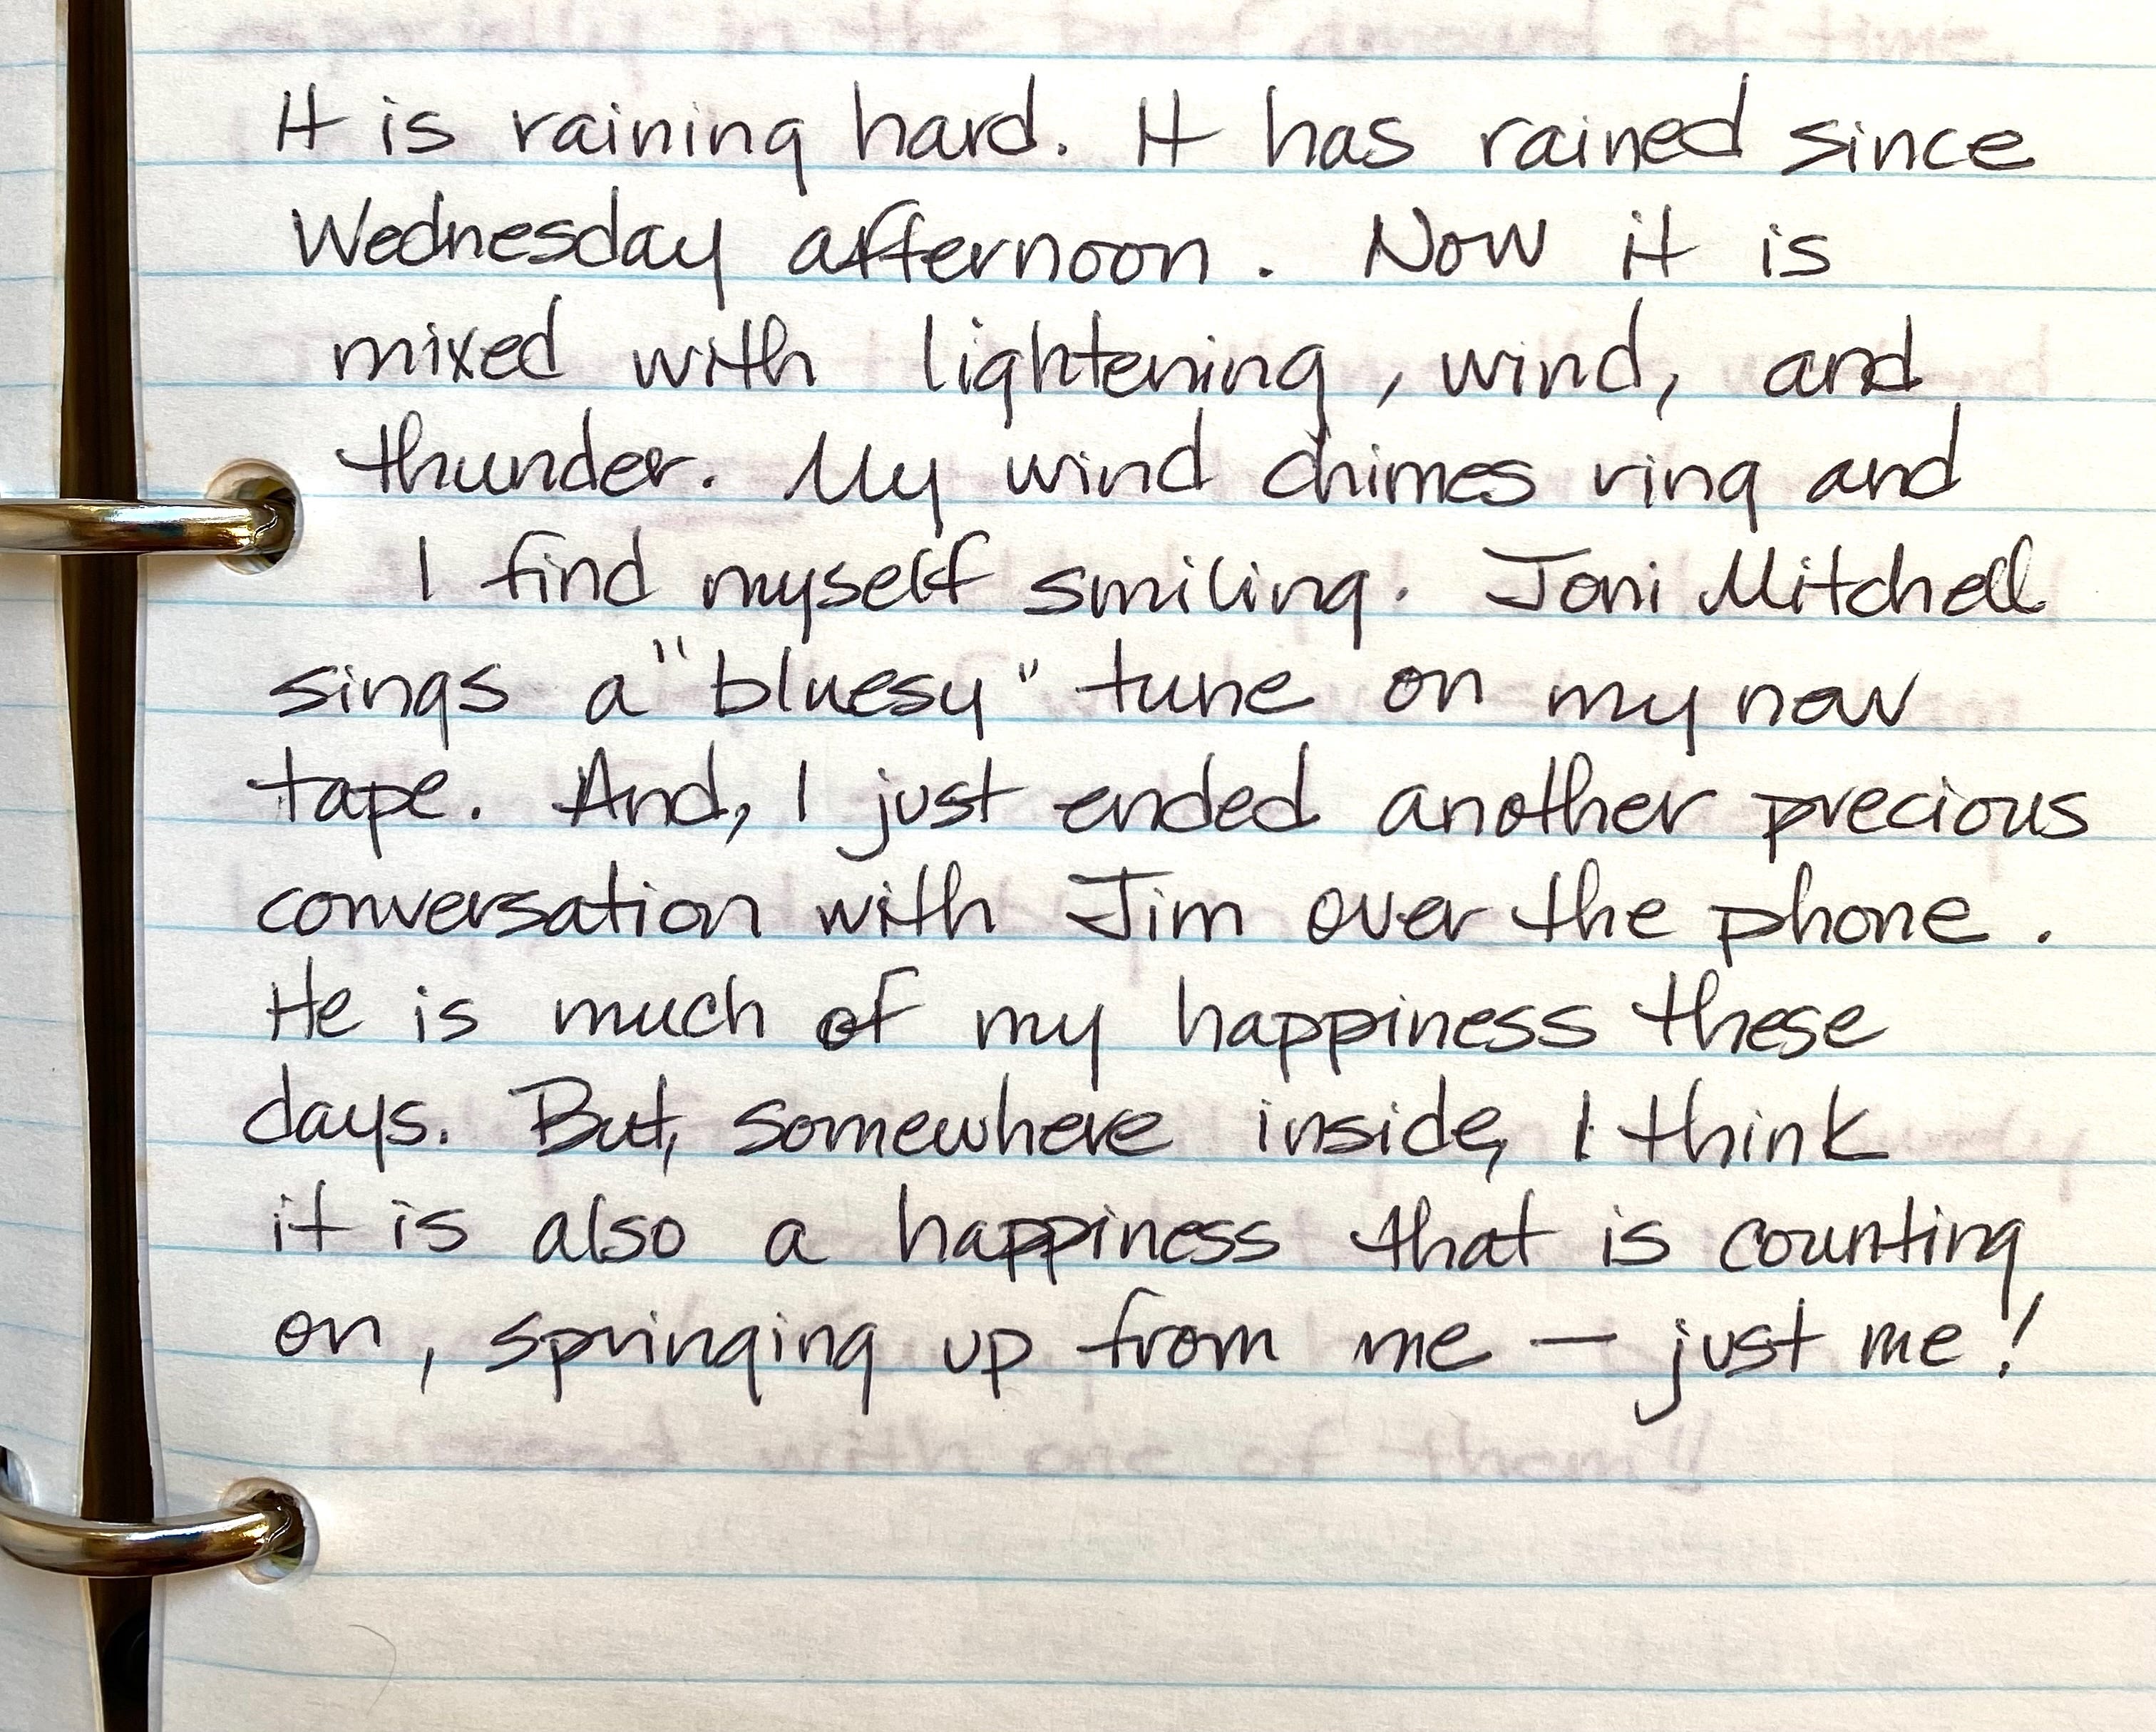 It is raining hard. It has rained since
Wednesday afternoon. Now it is
mixed with lightening, wind, and
thunder. My wind chimes ring and
I find myself smiling. Joni Mitchell
sings a "bluesy" tune on my new
tape. And, I just ended another precious
conversation with Jim over the phone.
He is much of my happiness these
days. But, somewhere inside, I think
it is also a happiness that is counting
on, springing up from me — just me!